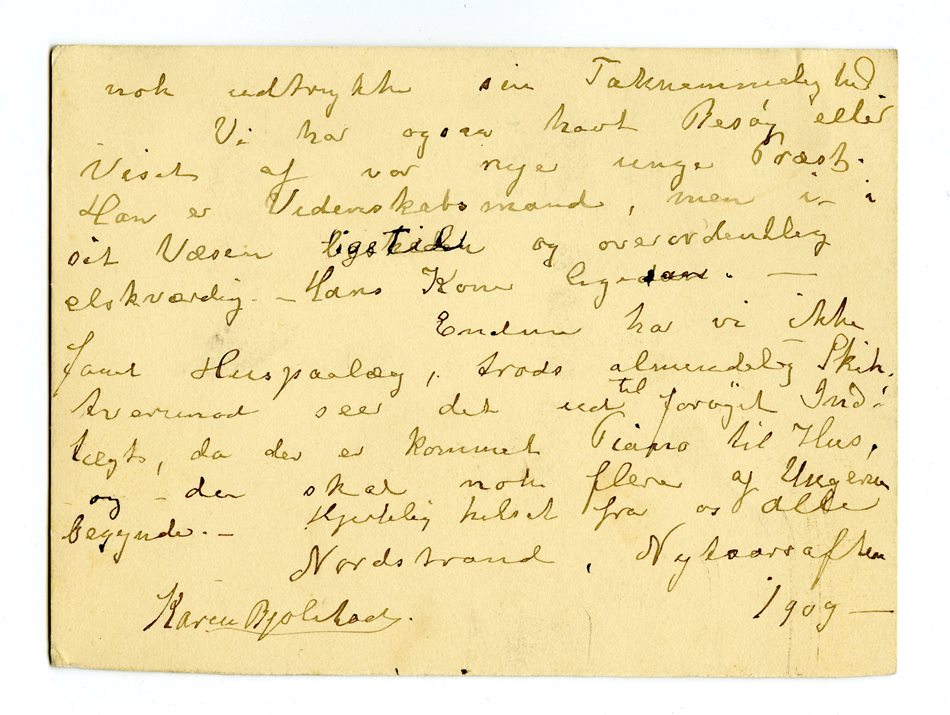 nok udtrykke sin Taknemmelighed
Vi har ogsaa havt Besøg eller
Viset af vor nye unge Præst.
Han er Videnskabsmand, men i - i
sit Væsen og overordentlig
elskværdig. - Hans Kone ligedan. -
Endnu har vi ikke
faaet Huspaalæg, trods almindelig Skik,
tvermod seer det ud til forøget Ind-
lægt, da der er kommet Piano til Hus,
- og - der skal nok flere af Ungerne
begynde. - Hjertelig hilset fra os alle
Nordstrand, Nytaarsaften
1909 -
Karen Bjølstad.